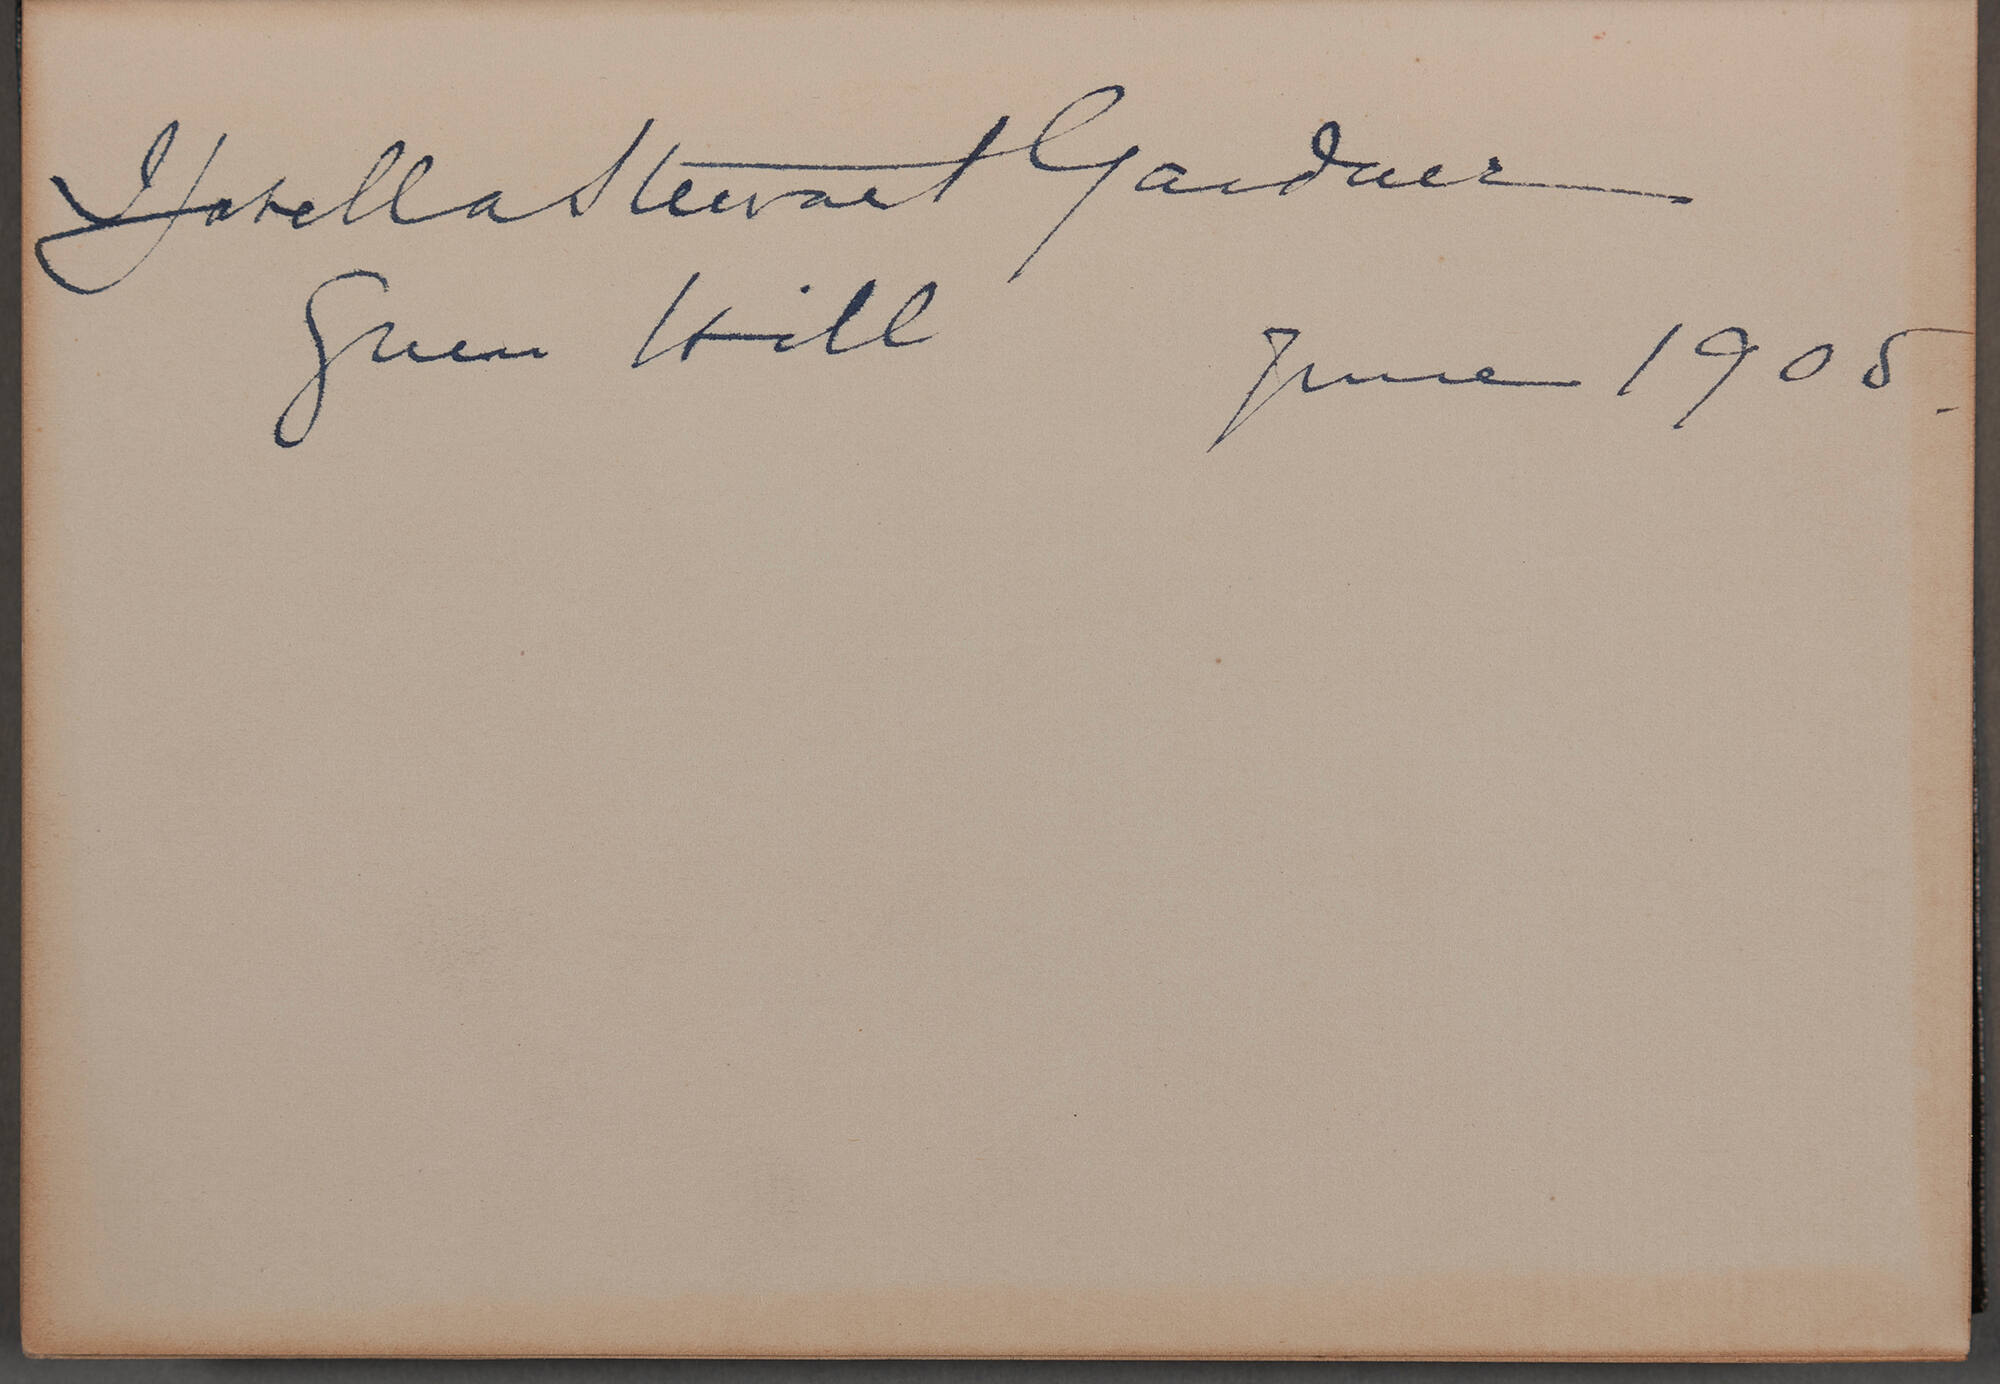 Isabella Stewart Gardner
Green Hill June 1905.